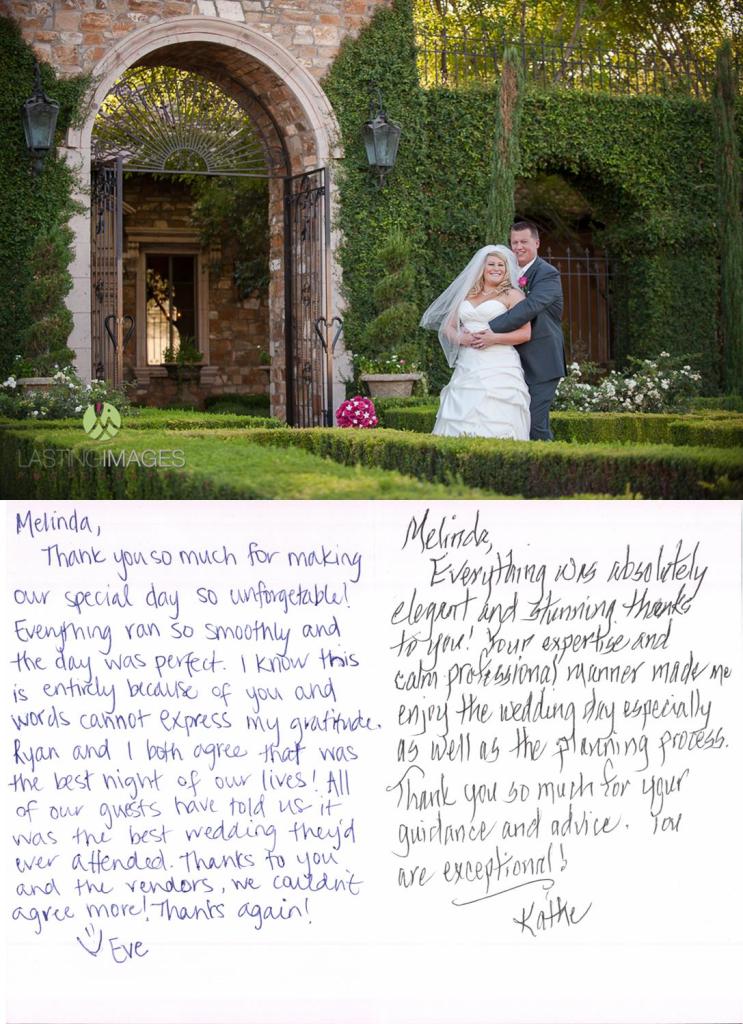 LASTINGIMAGES
Melinda,
Thank you so much for making
our special day so unforgetable!
Everything ran so smoothly and
the day was perfect. I know this
is entirely because of you and
words cannot express my gratitude.
Ryan and I both agree that was
the best night of our lives! All
of our guests have told us it
was the best wedding they'd
ever attended. Thanks to you
and the vendors, we couldn't
agree more! Thanks again!
Eve
Melinda,
Everything was absolutely
elegant and stunning thanks
to you! Your expertise and
calm professional manner made me
enjoy the wedding day especially
as well as the planning process.
Thank you so much for your
guidance and advice. You
are exceptional!
Kathe